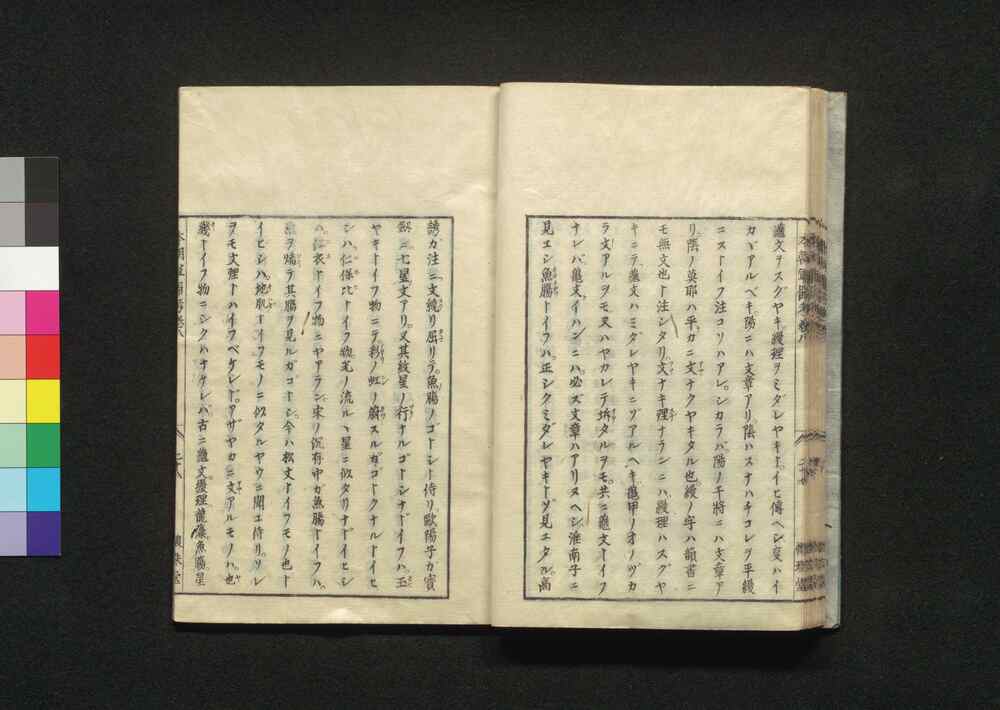 龜文ヲスグヤキ縵理ヲミダレヤキト.イヒ傳ヘシ.変ハイ
カヾアルベキ.陽ニハ文章アリ.陰ハスナハチコレヲ平縵
ニストイフ注コソハアレ.シカラバ.陽ノ干將ニハ文章ア
リ.陰ノ莫耶ハ平カニ文ナクヤキタル也.縵ノ字ハ韻書ニ
モ無文也ト注シタリ.文ナキ理ナランニハ.縵理ハスグヤ
キニテ龜文ハミダレヤキニゾアルヘキ.龜甲ノオノヅカ
ラ文アルヲモ.又ハヤカレテ坼タルヲモ.共ニ龜文トイフ
ナレバ.龜文イハンニハ.必ズ文章ハアリヌヘシ.淮南子ニ
見エシ魚腸トイフハ.正シクミダレヤキトゾ見エタル.高
誘ガ注ニ文繞リ屈リテ.魚腸ノゴトシト侍リ.歐陽子ガ寳
劔ニ七星文アリ.又其紋星ノ行ナルゴトシナドイフハ.玉
ヤキトイフ物ニテ.彩ノ虹ノ屑スルガゴトクナルトイヒ
シハ.仁保比トイフ物.芒ノ流ルヽ星ニ似タリナドイヒシ
ハ.トイフ物ニヤアラン.宋ノ沉存中ガ魚腸トイフハ.
ヲ燔テ其腸ヲ見ルガゴトシ.今ハ松文トイフモノ也ト
イヒシハ.地肌トイフモノニ似タルヤウニ聞エ侍リ.ソレ
ヲモ文理トハイフベケレド.アザヤカニ文アルモノハ.也
トイフ物ニシクハナケレバ.古ニ龜文縵理龍藻魚腸星